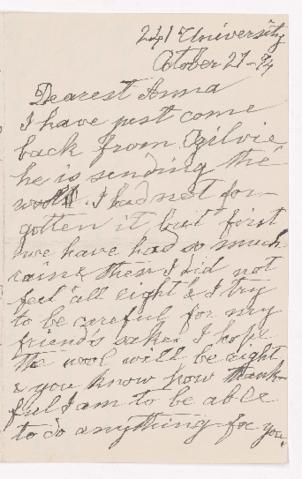 241 University
October 27 - 94
Dearest Anna
I have just come
back from Ogilvie
he is sending the
wool. I had not for-
gotten it, but first
we have had so much
rain & then I did not
feel all right & I try
to be careful for my
friends sakes I hope
the wool will be right
& you know how thank-
ful I am to be able
to do anything for you.